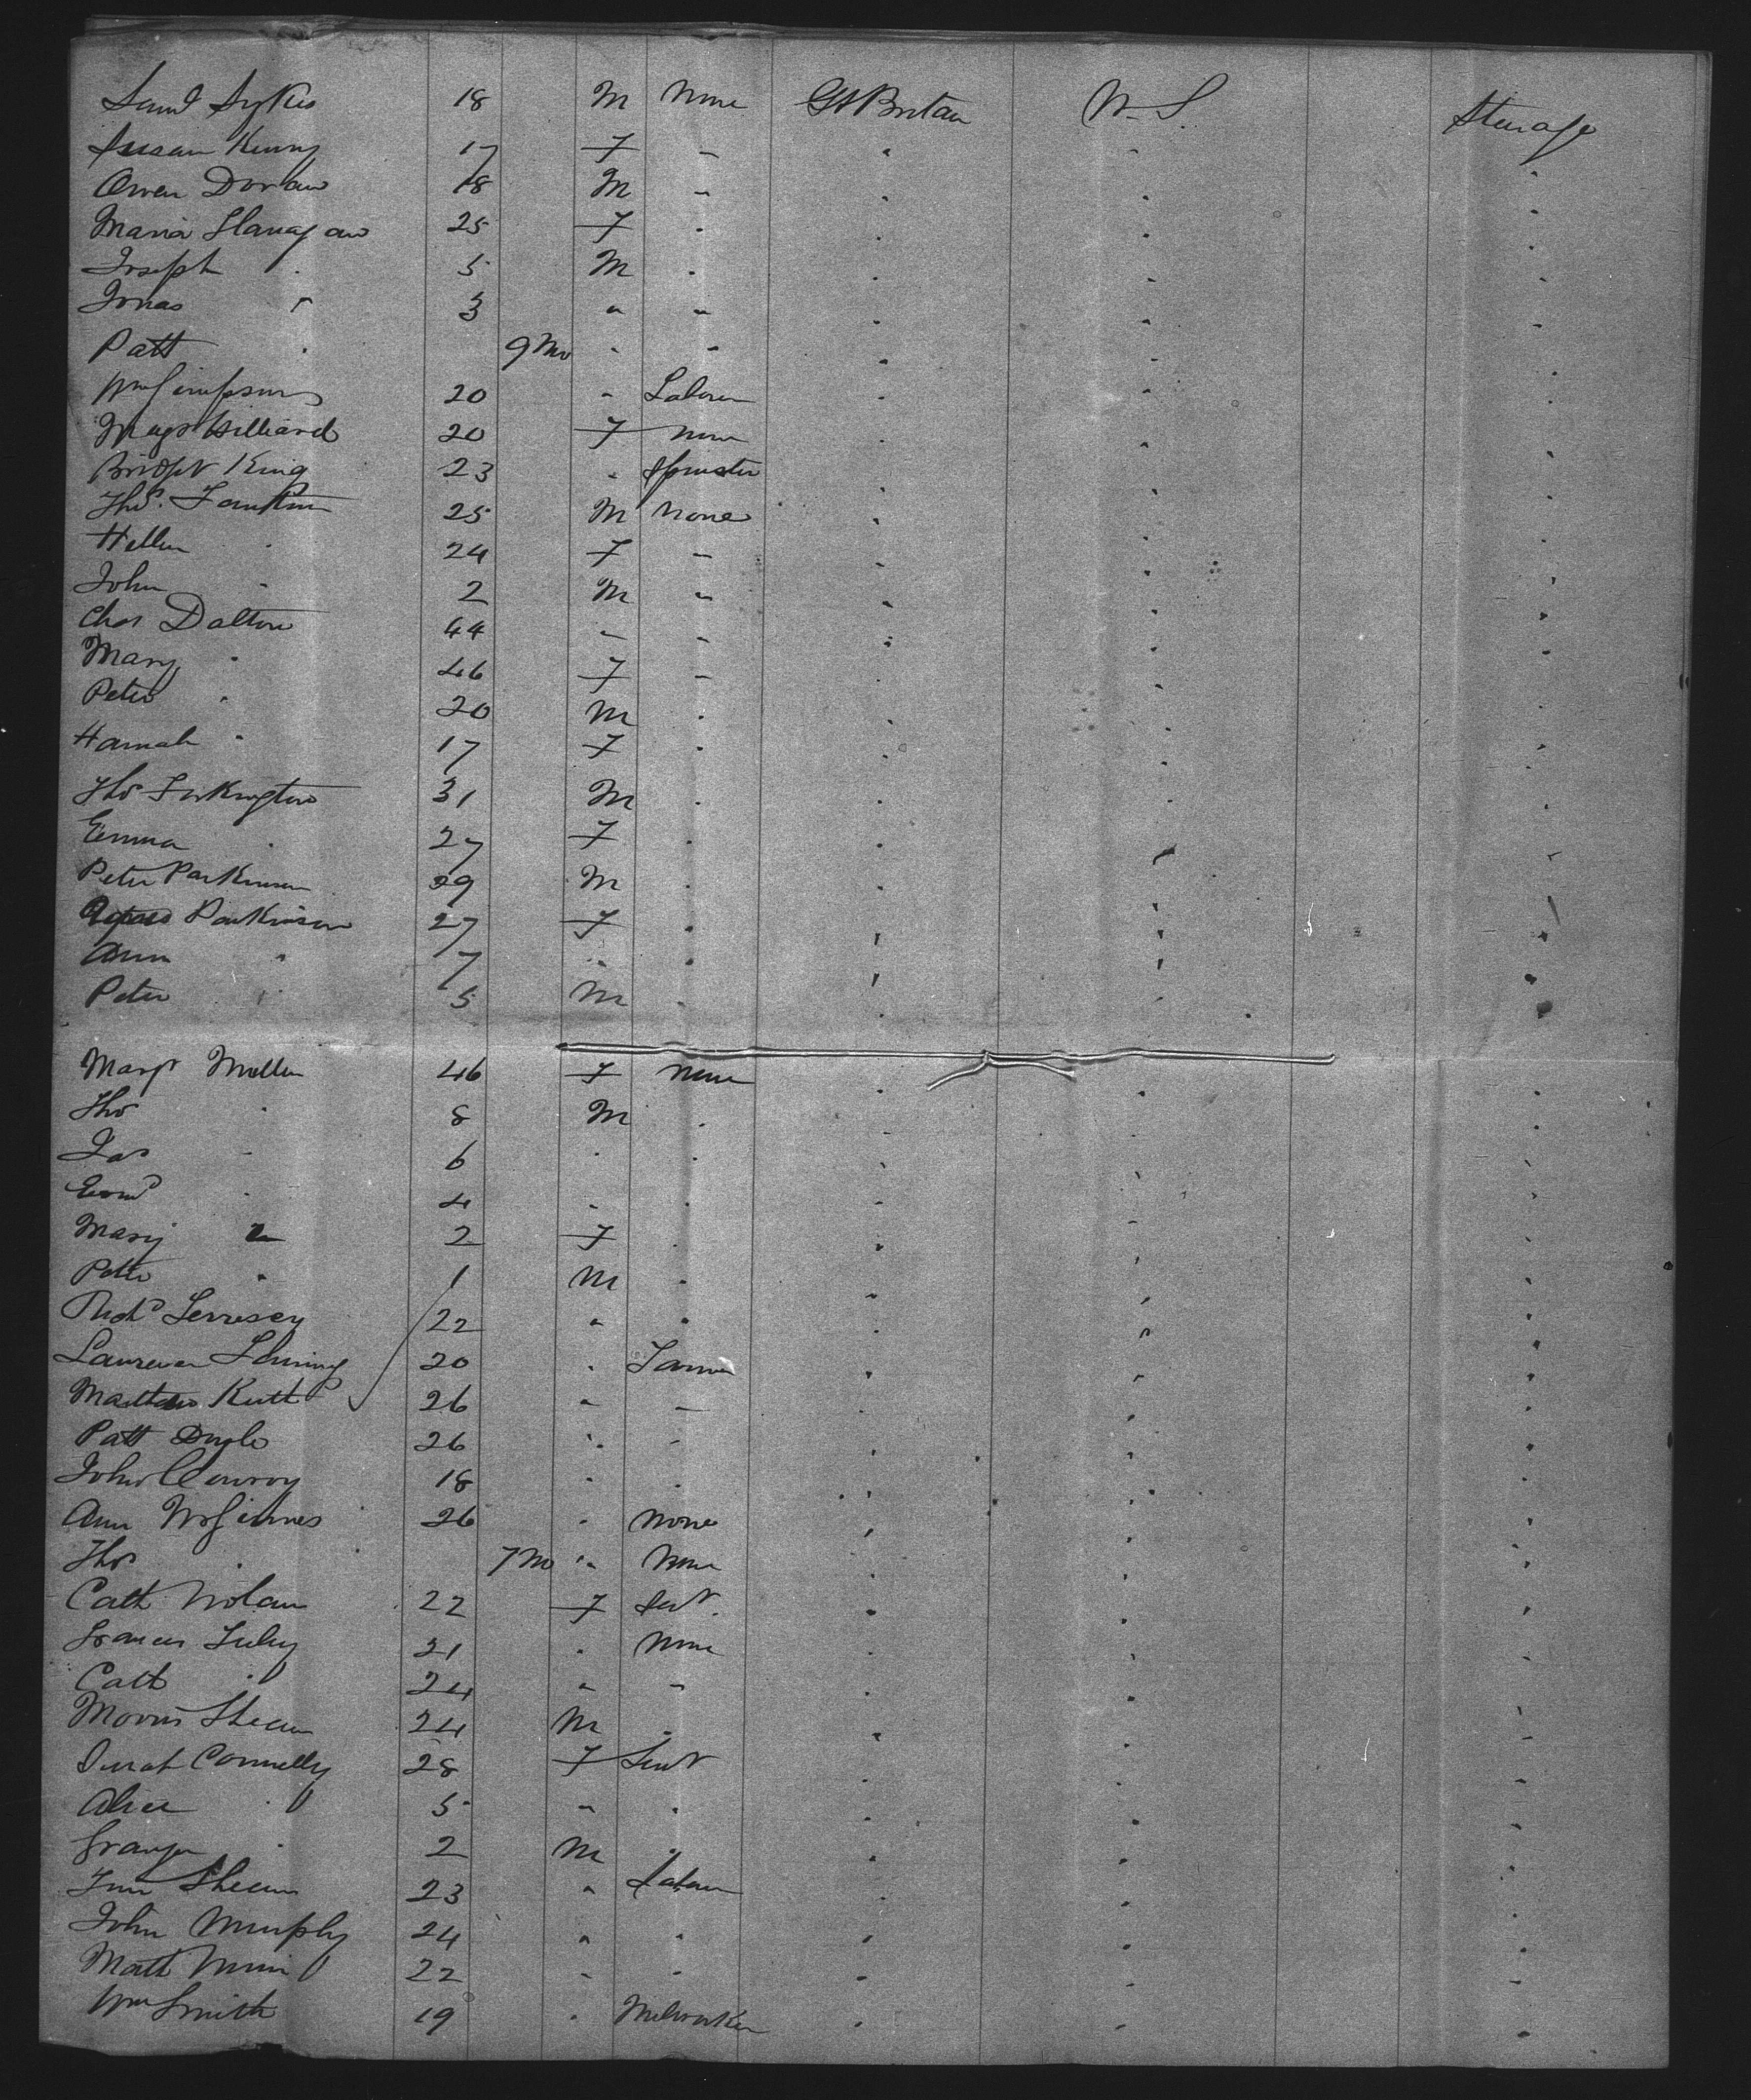 Saml Sykes 18 M None Gt Britan U.S. Sterage
Susan Kenny 17 F " " " "
Owen Doran 18 M " " " "
Maria Flanagan 25 F " " " "
Joseph " 5 M " " " "
Jonas " 3 " " " " "
Patt " 9 Mo " " " " "
Wm Simpson 20 " Laborer " " "
Magt Hilliard 20 F None " " "
Bridget King 23 " Spinster " " "
Thos. 25 M None " " "
Hellen " 24 F " " " "
John " 2 M " " " "
Chas Dalton 44 " " " " "
Mary " 46 F " " " "
Peter " 20 M " " " "
Hannah " 17 F " " " "
Thos 31 M " " " "
Emma " 27 F " " " "
Peter Parkinson 29 M " " " "
Parkinson 27 F " " " "
Ann " 7 " " " " "
Peter " 5 M " " " "
Margt Mullen 46 F None " " "
Thos " 8 M " " " "
Jas " 6 " " " " "
Edwd " 4 " " " " "
Mary " 2 F " " " "
Peter " 1 M " " " "
Richd 22 " " " " "
Laurence 20 " Farmer " " "
Matthew 26 " " " " "
Patt Doyle 26 " " " " "
John Conroy 18 " " " " "
Ann McGinnes 26 " None " " "
Thos " 7 Mo " None " " "
Cath Nolan 22 F Sert " " "
Frances 21 " None " " "
Cath " 24 " " " " "
Morris Sheean 24 M " " " "
Connelly 28 F Sert " " "
Alice " 5 " " " " "
" 2 M " " " "
Sheean 23 " Laborer " " "
John Murphy 24 " " " " "
Matt 22 " " " " "
Wm Smith 19 " " " "